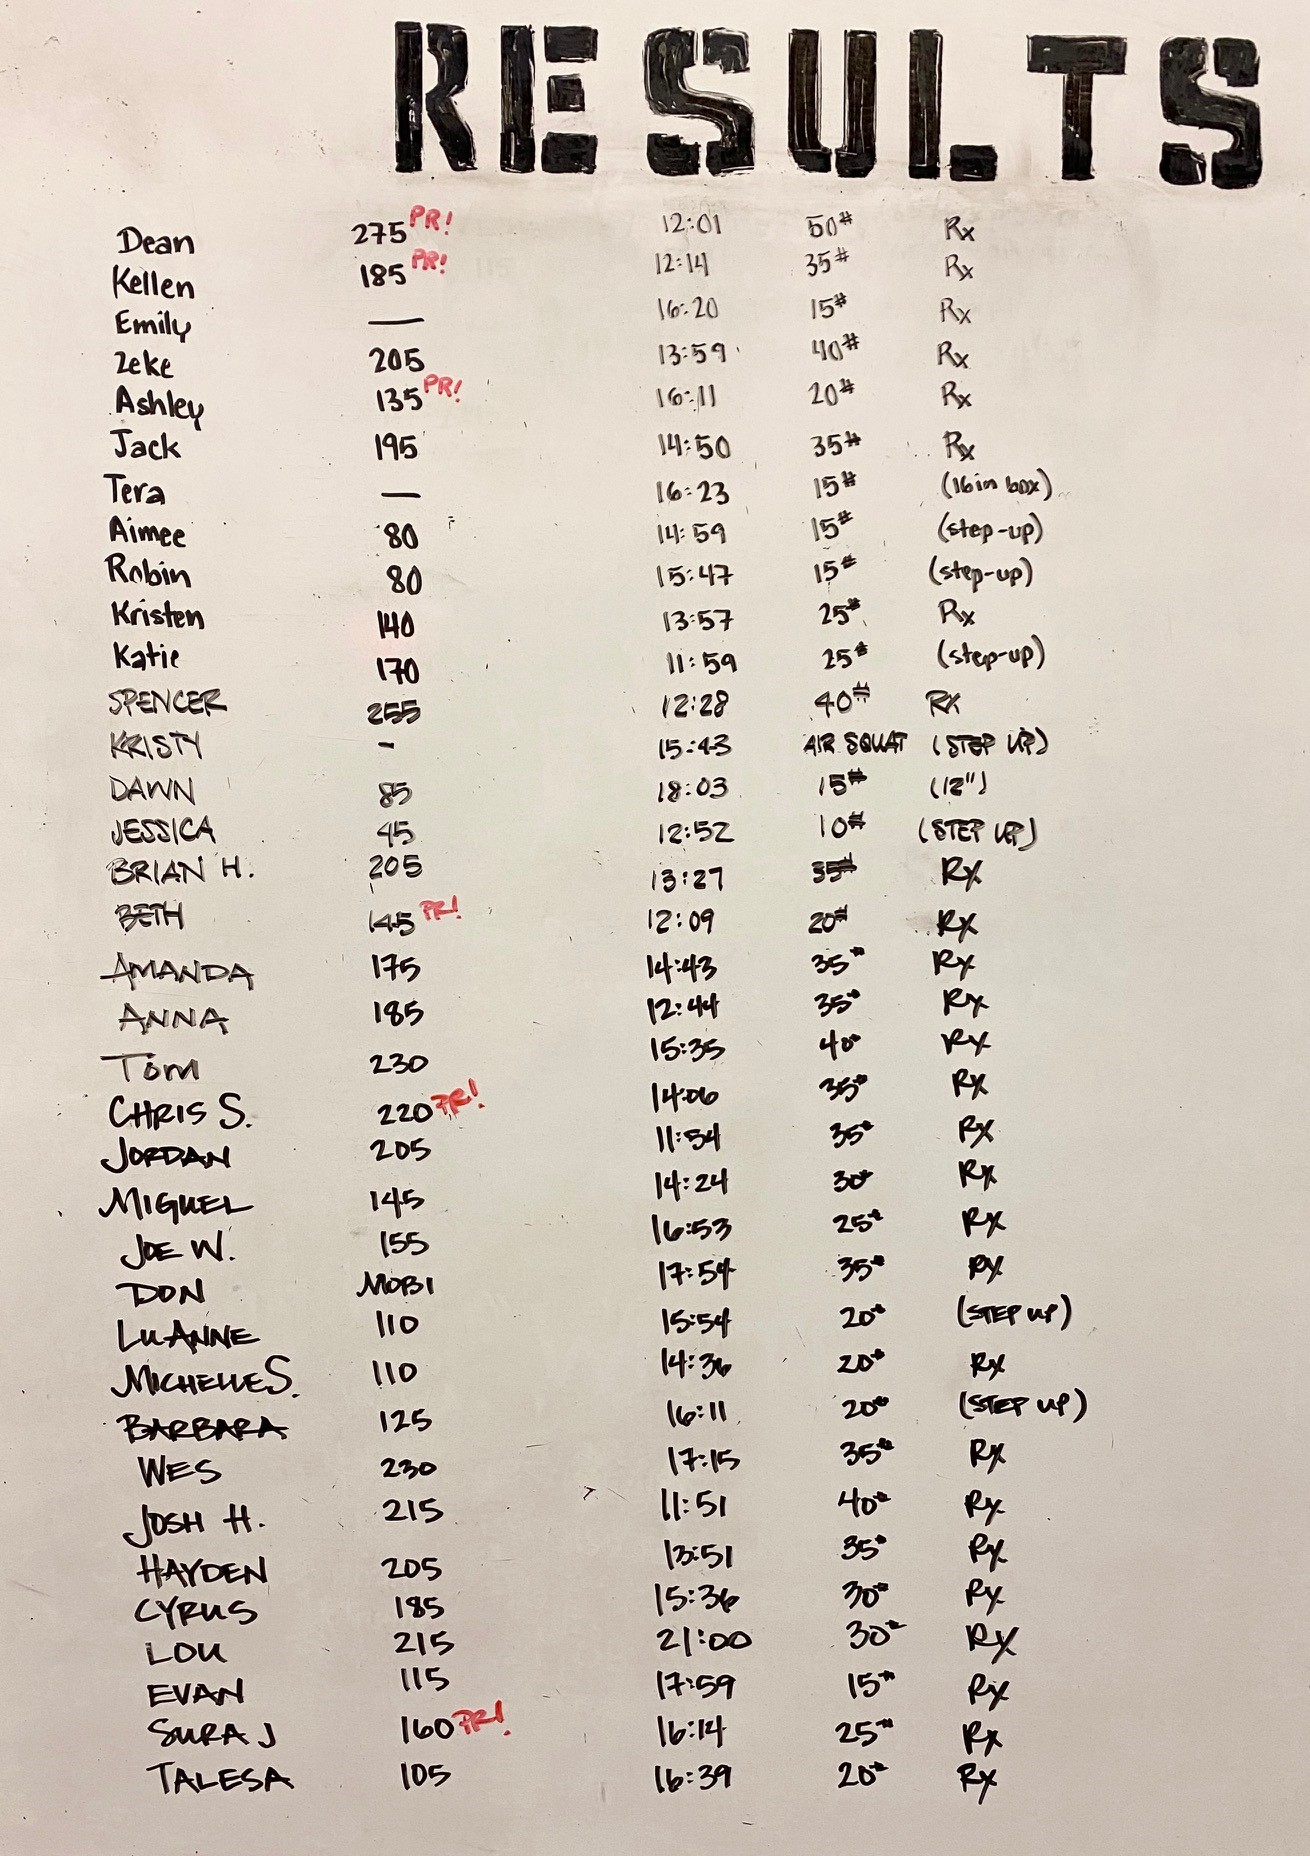 RESULTS
Dean 275 PR! 12:01 50# Rx
Kellen 185 PR! 12:14 35# Rx
Emily — 16:20 15# Rx
Zeke 205 13:59 40# Rx
Ashley 135 PR! 16:11 20# Rx
Jack 195 14:50 35# Rx
Tera — 16:23 15# (16in box)
Aimee 80 14:59 15# (step-up)
Robin 80 15:47 15# (step-up)
Kristen 140 13:57 25# Rx
Katie 170 11:59 25# (step-up)
SPENCER 255 12:28 40# RX
KRISTY - 15:43 AIR SQUAT (STEP UP)
DAWN 85 18:03 15# (12")
JESSICA 45 12:52 10# (STEP UP)
BRIAN H. 205 13:27 35# Rx
BETH 145 PR! 12:09 20# Rx
AMANDA 175 14:43 35# Rx
ANNA 185 12:44 35# Rx
Tom 230 15:35 40# Rx
CHRIS S. 220 PR! 14:06 35# Rx
JORDAN 205 11:54 35# Rx
MIGUEL 145 14:24 30# Rx
JOE W. 155 16:53 25# Rx
DON MOBI 17:54 35# Rx
LUANNE 110 15:54 20# (STEP UP)
MICHELLE S. 110 14:36 20# Rx
BARBARA 125 16:11 20# (STEP UP)
WES 230 17:15 35# Rx
JOSH H. 215 11:51 40# Rx
HAYDEN 205 13:51 35# Rx
CYRUS 185 15:36 30# Rx
LOU 215 21:00 30# Rx
EVAN 115 17:59 15# Rx
SURAJ 160 PR! 16:14 25# Rx
TALESA 105 16:39 20# Rx